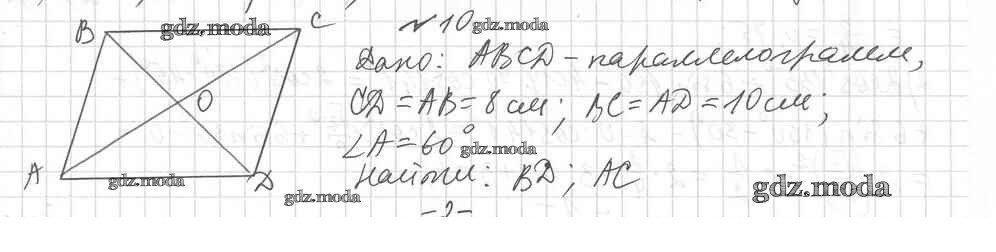 B C gdz.moda
№ 10 gdz.moda
Дано: ABCD - параллелограмм,
CD = AB = 8 см; BC = AD = 10 см;
O
∠A = 60° gdz.moda
A gdz.moda D
Найти: BD; AC
gdz.moda gdz.moda
-2-